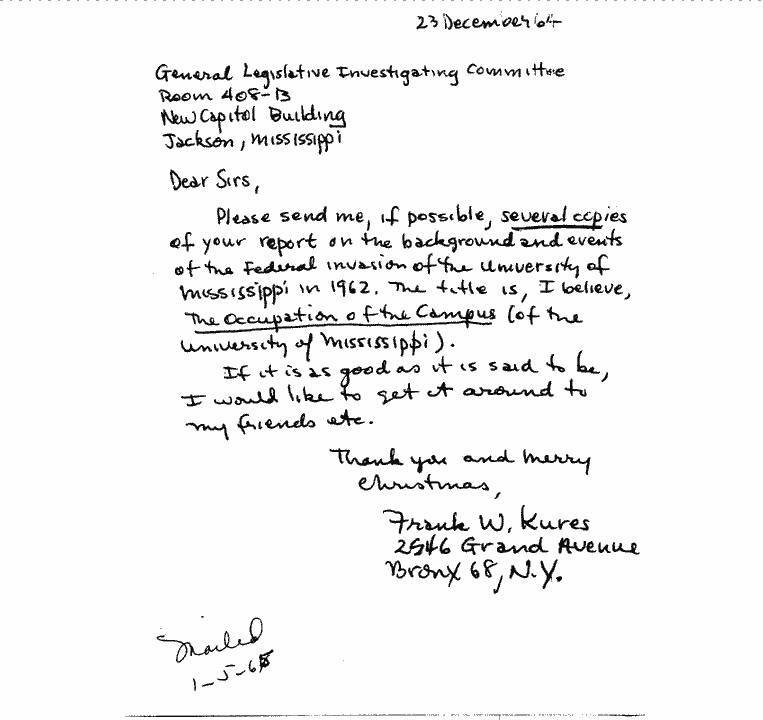 23 December 64
General Legislative Investigating Committee
Room 408-B
New Capitol Building
Jackson, Mississippi
Dear Sirs,
Please send me, if possible, several copies
of your report on the background and events
of the Federal invasion of the University of
Mississippi in 1962. The title is, I believe,
The Occupation of the Campus (of the
University of Mississippi).
If it is as good as it is said to be,
I would like to get it around to
my friends etc.
Thank you and Merry
Christmas,
Frank W. Kures
2546 Grand Avenue
Bronx 68, N.Y.
Mailed
1-5-65